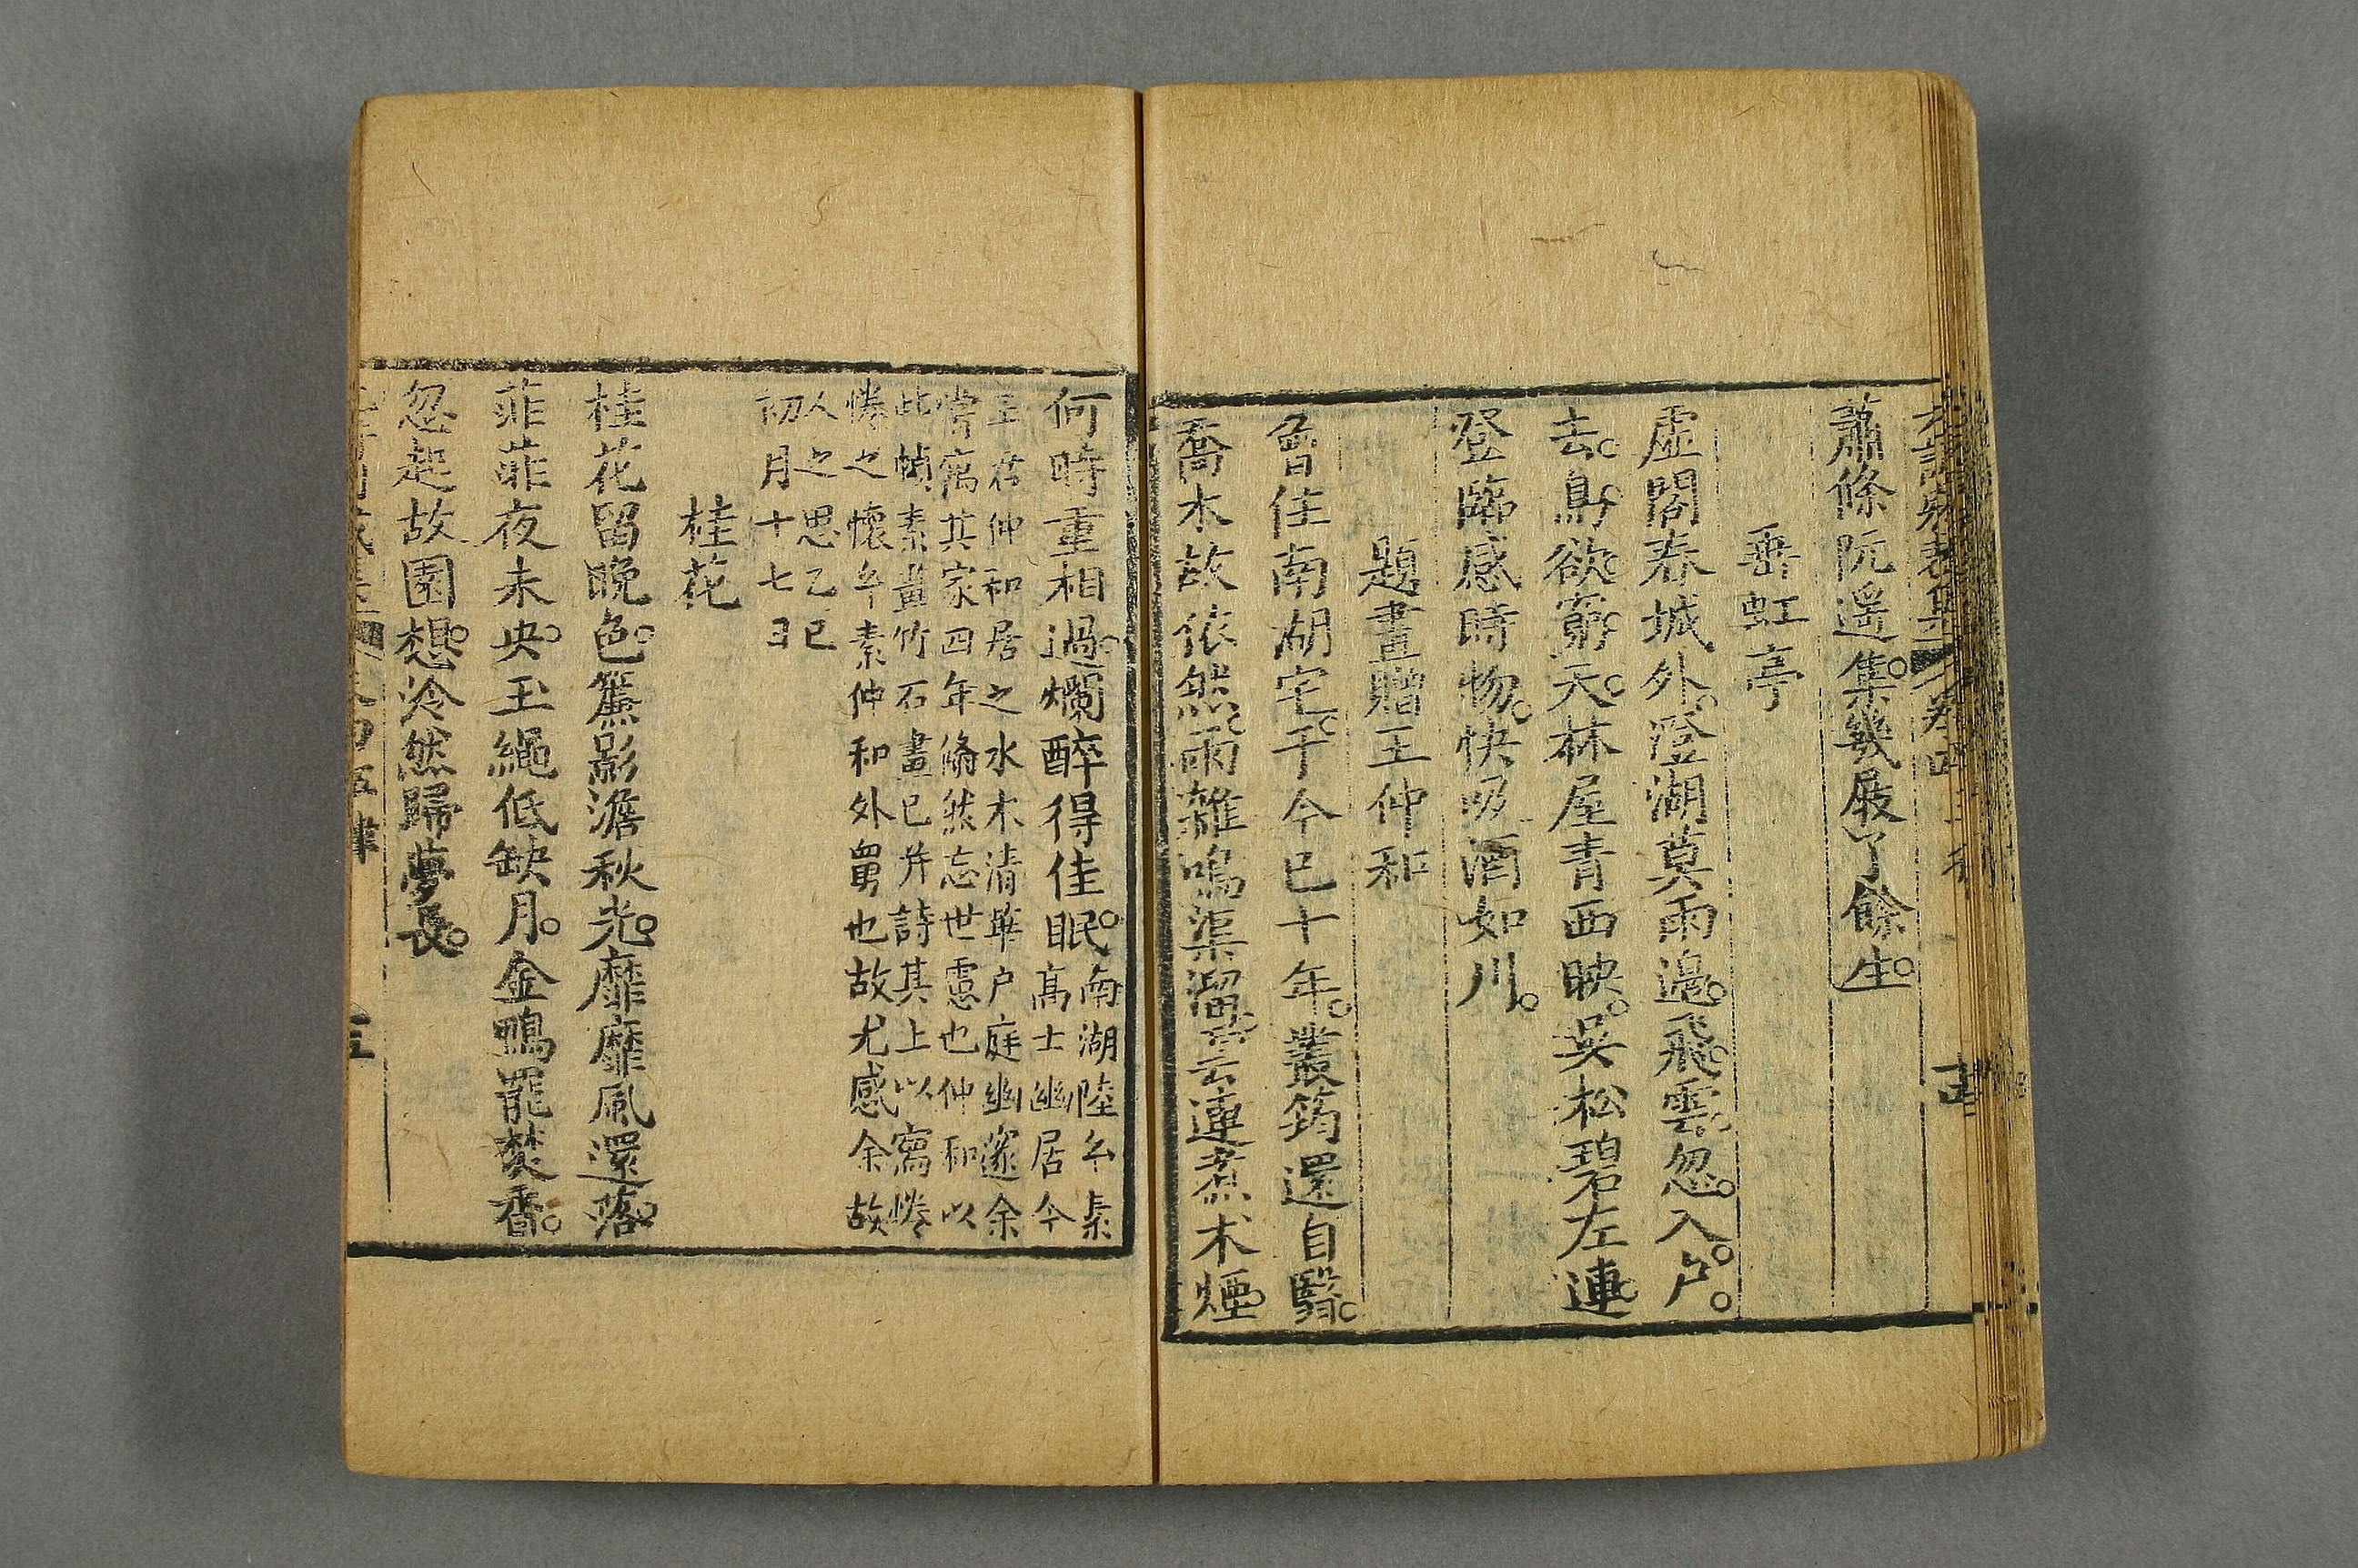 蕭條阮遥集幾屐了餘生
垂虹亭
虚閣春城外澄湖莫雨邊飛雲忽入户
去鳥欲窮天林屋青西映吳松碧左連
登臨感時物快吸酒如川
題畫贈王仲和
會住南湖宅于今已十年叢筠還自翳
喬木故依然雨雜鳴渠溜雲連煮术煙
何時重相過爛醉得佳眠
南湖陸玄素
高士幽居今
王君仲和居之水木清華户庭幽邃余
常寓其家四年翛然忘世慮也仲和以
此幀素畫竹石畫已并詩其上以寫惓
惓之懷玄素仲和外舅也故尤感余故
人之思乙巳
初月十七日
桂花
桂花留晚色簾影澹秋光靡靡風還落
菲菲夜未央玉繩低缺月金鴨罷焚香
忽起故園想泠然歸夢長